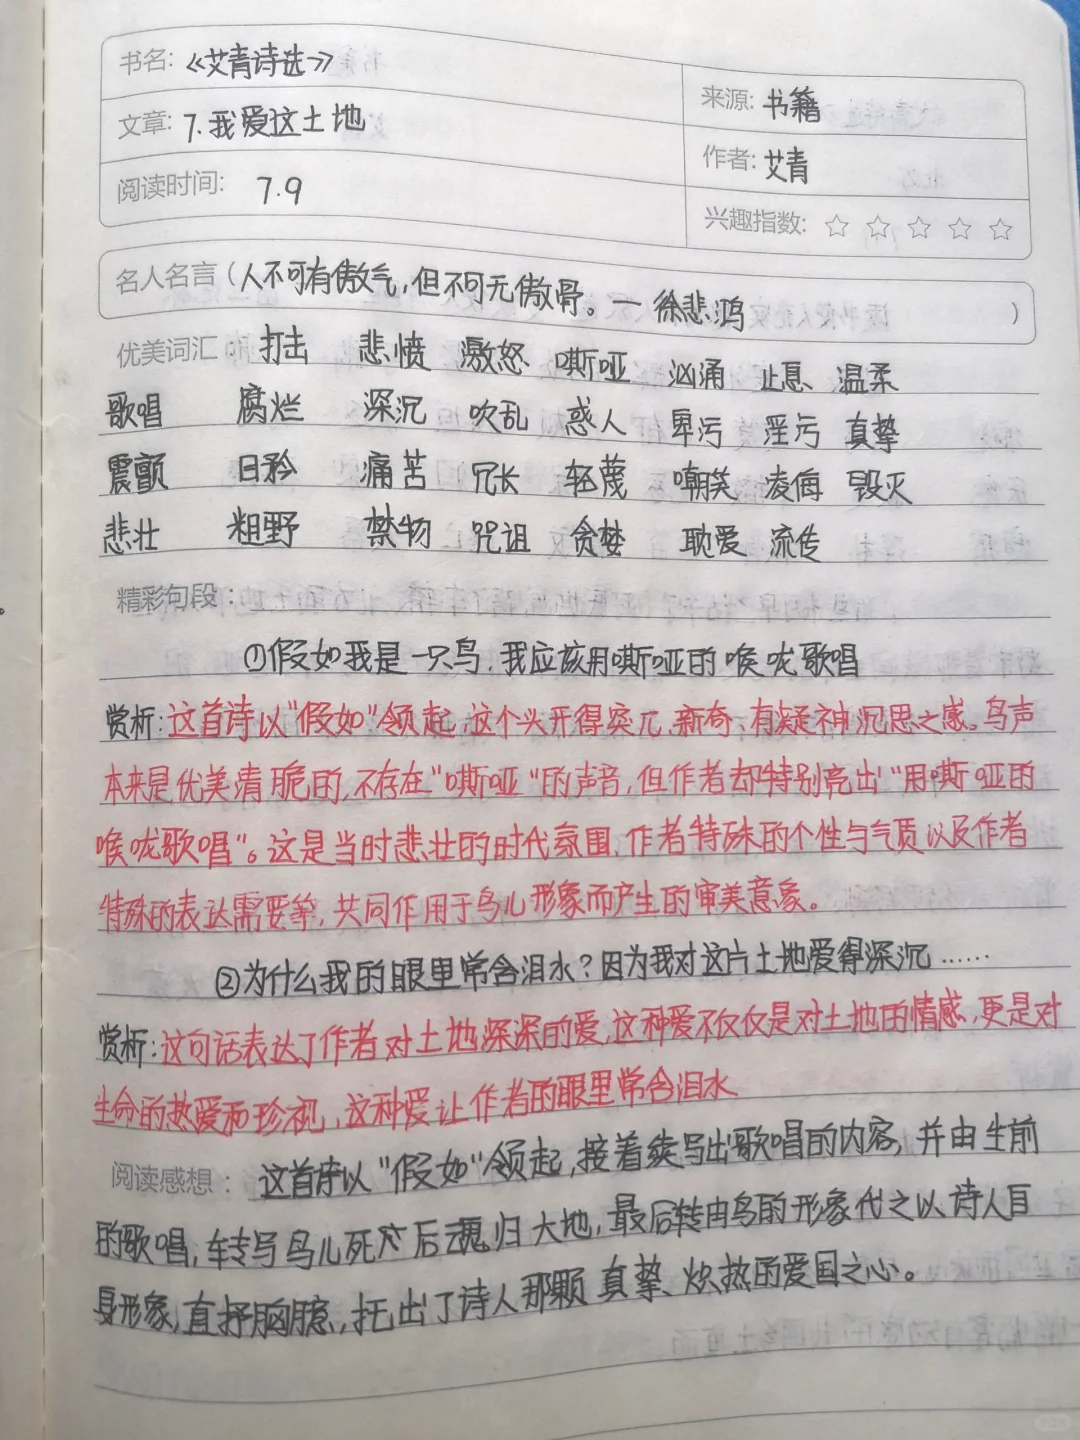 书名: 《艾青诗选》
来源: 书籍
文章: 7.我爱这土地
作者: 艾青
阅读时间: 7.9
兴趣指数: ☆ ☆ ☆ ☆ ☆
名人名言(人不可有傲气,但不可无傲骨。— 徐悲鸿 )
优美词汇 打击 悲愤 激怒 嘶哑 汹涌 止息 温柔
歌唱 腐烂 深沉 吹乱 惑人 卑污 淫污 真挚
震颤 日矜 痛苦 冗长 轻蔑 嘲笑 凌侮 毁灭
悲壮 粗野 禁物 咒诅 贪婪 耽爱 流传
精彩句段:
①假如我是一只鸟,我应该用嘶哑的喉咙歌唱
赏析:这首诗以"假如"领起,这个头开得突兀、新奇,有凝神沉思之感。鸟声
本来是优美清脆的,不存在"嘶哑"的声音,但作者却特别亮出"用嘶哑的
喉咙歌唱"。这是当时悲壮的时代氛围,作者特殊的个性与气质以及作者
特殊的表达需要等,共同作用于鸟儿形象而产生的审美意象。
②为什么我的眼里常含泪水?因为我对这片土地爱得深沉……
赏析:这句话表达了作者对土地深深的爱,这种爱不仅仅是对土地的情感,更是对
生命的热爱和珍视,这种爱让作者的眼里常含泪水
阅读感想: 这首诗以"假如"领起,接着续写出歌唱的内容,并由生前
的歌唱,转写鸟儿死亡后魂归大地,最后转由鸟的形象代之以诗人自
身形象,直抒胸臆,托出了诗人那颗真挚、炽热的爱国之心。